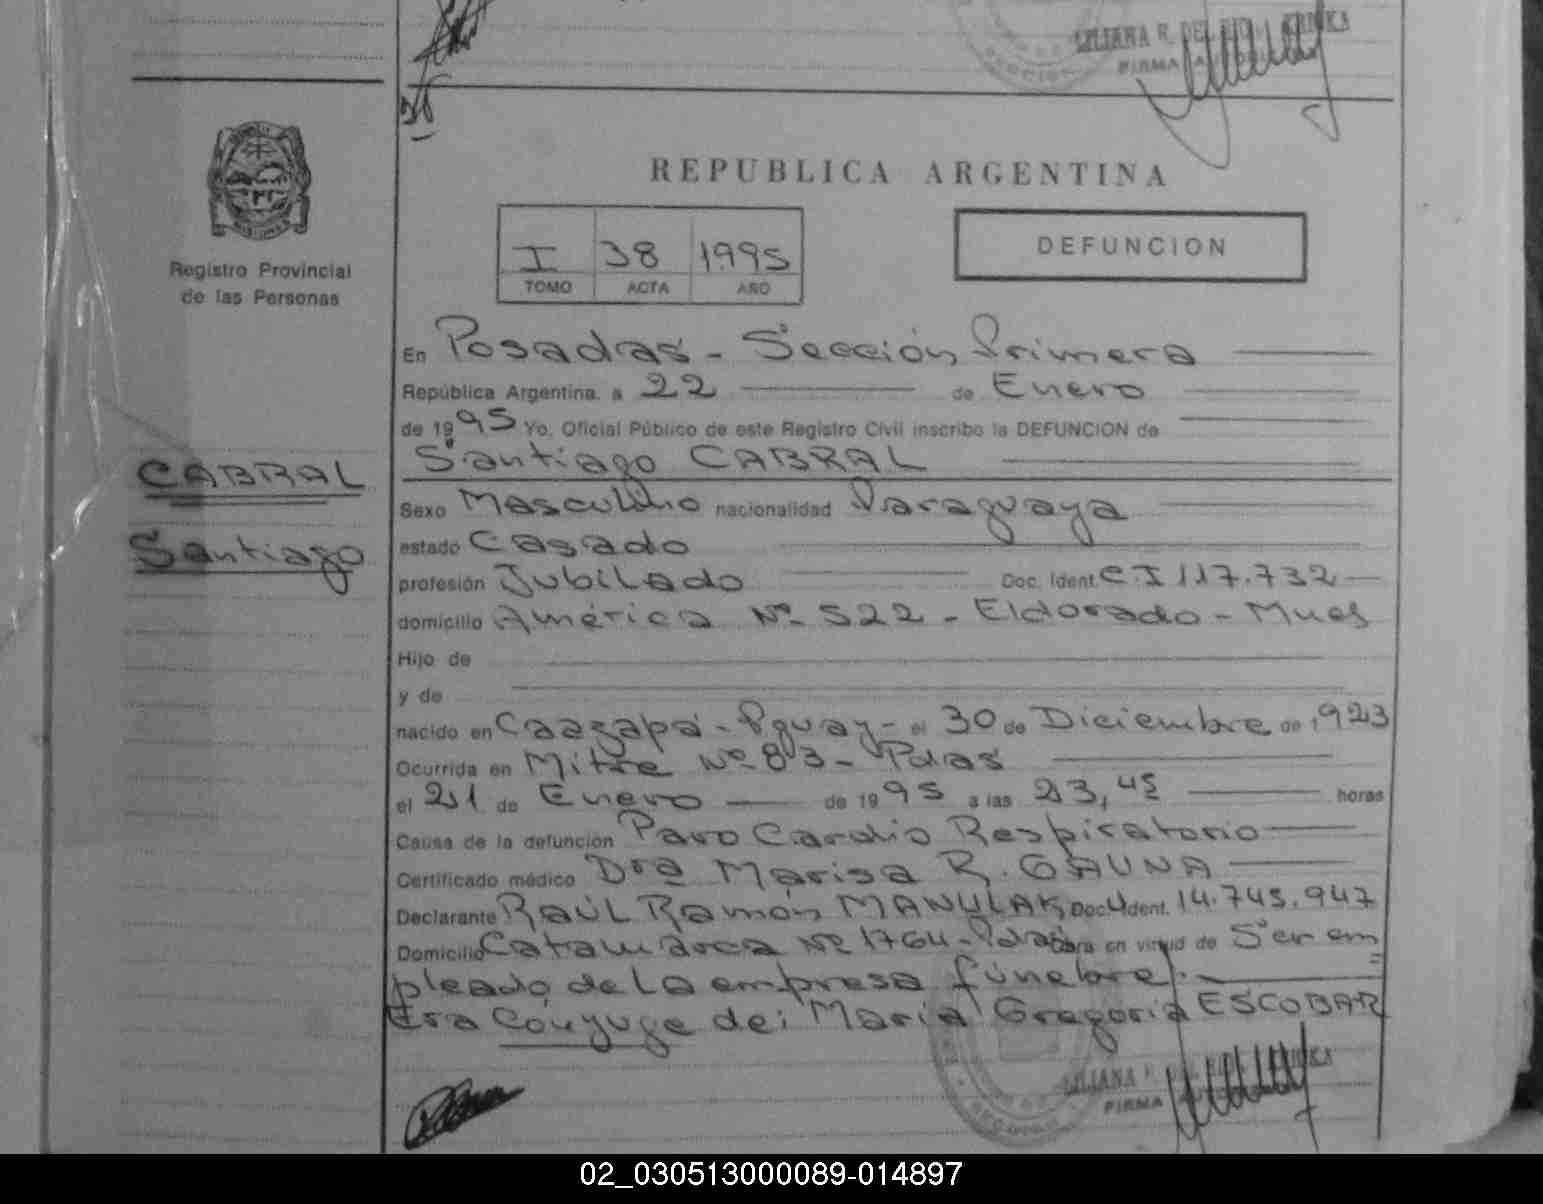 LILIANA R. DEL
FIRMA
REPUBLICA ARGENTINA
Registro Provincial
de las Personas
I 38 1995
TOMO ACTA AÑO
DEFUNCION
En Posadas - Sección Primera
República Argentina, a 22 de Enero
de 1995 Yo, Oficial Público de este Registro Civil inscribo la DEFUNCION de
CABRAL
Santiago
Santiago CABRAL
Sexo Masculino nacionalidad Paraguaya
estado Casado
profesión Jubilado Doc. Ident. C.I 117.732
domicilio América Nº 522 - Eldorado - Mnes
Hijo de
y de
nacido en Caazapá - Pguay - el 30 de Diciembre de 1923
Ocurrida en Mitre Nº 83 - Pdas
el 21 de Enero de 1995 a las 23,45 horas
Causa de la defunción Paro Cardio Respiratorio
Certificado médico Dra Marisa R. GAUNA
Declarante RAÚL Ramón MANULAK Doc. Ident. 14.745.947
Domicilio Catamarca Nº 1764 - Pdas Obra en virtud de Ser em=
pleado de la empresa fúnebre.
Era Cónyuge de: María Gregoria ESCOBAR
LILIANA
FIRMA
02_030513000089-014897